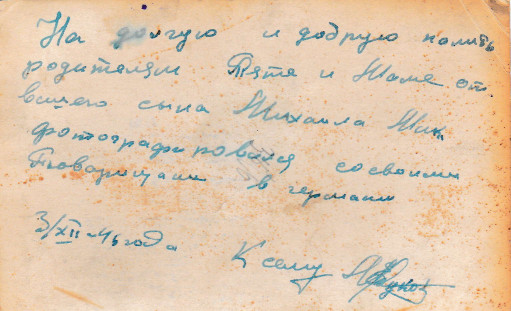 На долгую и добрую память
родителям Тяте и Маме от
вашего сына Михаила Мих.
фотографировался со своими
товарищами в германии
3/XII-46 года
К сему